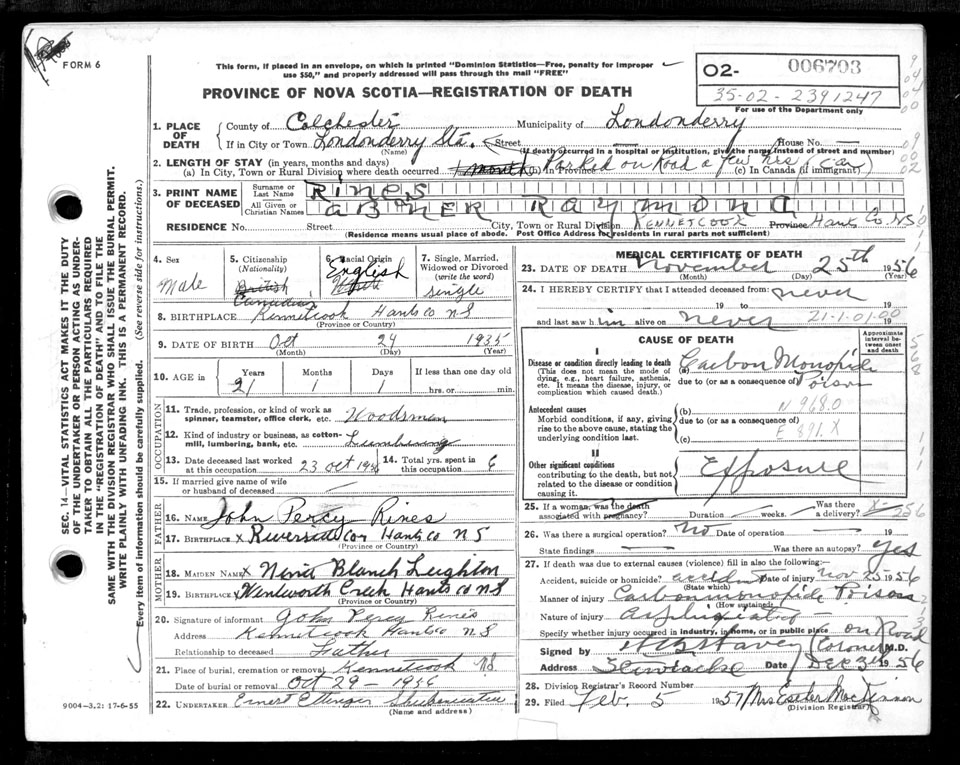 FORM 6
This form, if placed in an envelope, on which is printed "Dominion Statistics—Free, penalty for improper
use $50," and properly addressed will pass through the mail "FREE"
PROVINCE OF NOVA SCOTIA—REGISTRATION OF DEATH
02- 006703
35-02-2391247
For use of the Department only
1. PLACE OF DEATH
County of Colchester Municipality of Londonderry
If in City or Town Londonderry Sta. Street House No.
(Name) (If death occurred in a hospital or institution, give the name instead of street and number)
2. LENGTH OF STAY (in years, months and days)
(a) In City, Town or Rural Division where death occurred 1 month (b) In Province Parked on Road a few hrs (Car) (c) In Canada (if immigrant)
3. PRINT NAME OF DECEASED
Surname or Last Name Rines
All Given or Christian Names ABNER RAYMOND
RESIDENCE No. Street City, Town or Rural Division KENNETCOOK Province Hants Co. NS
(Residence means usual place of abode. Post Office Address for residents in rural parts not sufficient)
4. Sex
Male
5. Citizenship
(Nationality)
British
Canadian
6. Racial Origin
English
White
7. Single, Married, Widowed or Divorced
(write the word)
single
8. BIRTHPLACE Kennetcook Hants co NS
(Province or Country)
9. DATE OF BIRTH Oct 24 1935
(Month) (Day) (Year)
10. AGE in Years Months Days If less than one day old
21 1 1 hrs. or min.
OCCUPATION
11. Trade, profession, or kind of work as spinner, teamster, office clerk, etc. Woodsman
12. Kind of industry or business, as cotton-mill, lumbering, bank, etc. Lumbering
13. Date deceased last worked at this occupation 23 oct 1956
14. Total yrs. spent in this occupation 6
15. If married give name of wife or husband of deceased —
FATHER
16. NAME John Percy Rines
17. BIRTHPLACE x Riverside Cor Hants co NS
(Province or Country)
MOTHER
18. MAIDEN NAME x Nina Blanch Leighton
19. BIRTHPLACE x Wentworth Creek Hants co NS
(Province or Country)
20. Signature of informant John Percy Rines
Address Kennetcook Hants co NS
Relationship to deceased Father
21. Place of burial, cremation or removal Kennetcook NS
Date of burial or removal Oct 29 - 1956
22. UNDERTAKER Ernest Ettinger Shubenacadie
(Name and address)
9004—3.2: 17-6-55
MEDICAL CERTIFICATE OF DEATH
23. DATE OF DEATH November 25th 1956
(Month) (Day) (Year)
24. I HEREBY CERTIFY that I attended deceased from: never
19 to 19
and last saw him alive on never 19
21-1.01.00
CAUSE OF DEATH
Approximate interval between onset and death
I
Disease or condition directly leading to death
(This does not mean the mode of dying, e.g., heart failure, asthenia, etc. It means the disease, injury, or complication which caused death.)
(a) Carbon Monoxide Poison
due to (or as a consequence of)
Antecedent causes
Morbid conditions, if any, giving rise to the above cause, stating the underlying condition last.
(b) N 968.0
due to (or as a consequence of)
(c) E 891.X
II
Other significant conditions
contributing to the death, but not related to the disease or condition causing it.
Exposure
25. If a woman, was the death associated with pregnancy? Duration weeks. Was there a delivery?
26. Was there a surgical operation? No Date of operation —
State findings — Was there an autopsy? Yes
27. If death was due to external causes (violence) fill in also the following:
Accident, suicide or homicide? accident Date of injury Nov 25 1956
Manner of injury Carbon monoxide Poison
(How sustained)
Nature of injury
Specify whether injury occurred in industry, in home, or in public place on Road
Signed by Coroner M.D.
Address Stewiacke Date Dec 3rd 1956
28. Division Registrar's Record Number
29. Filed Feb. 5 1957 Mrs Ester MacKinnon
(Division Registrar)
SEC. 14—VITAL STATISTICS ACT MAKES IT THE DUTY
OF THE UNDERTAKER OR PERSON ACTING AS UNDER-
TAKER TO OBTAIN ALL THE PARTICULARS REQUIRED
IN THE "REGISTRATION OF DEATH" AND TO FILE THE
SAME WITH THE DIVISION REGISTRAR WHO SHALL ISSUE THE BURIAL PERMIT.
WRITE PLAINLY WITH UNFADING INK. THIS IS A PERMANENT RECORD.
Every item of information should be carefully supplied. (See reverse side for instructions.)